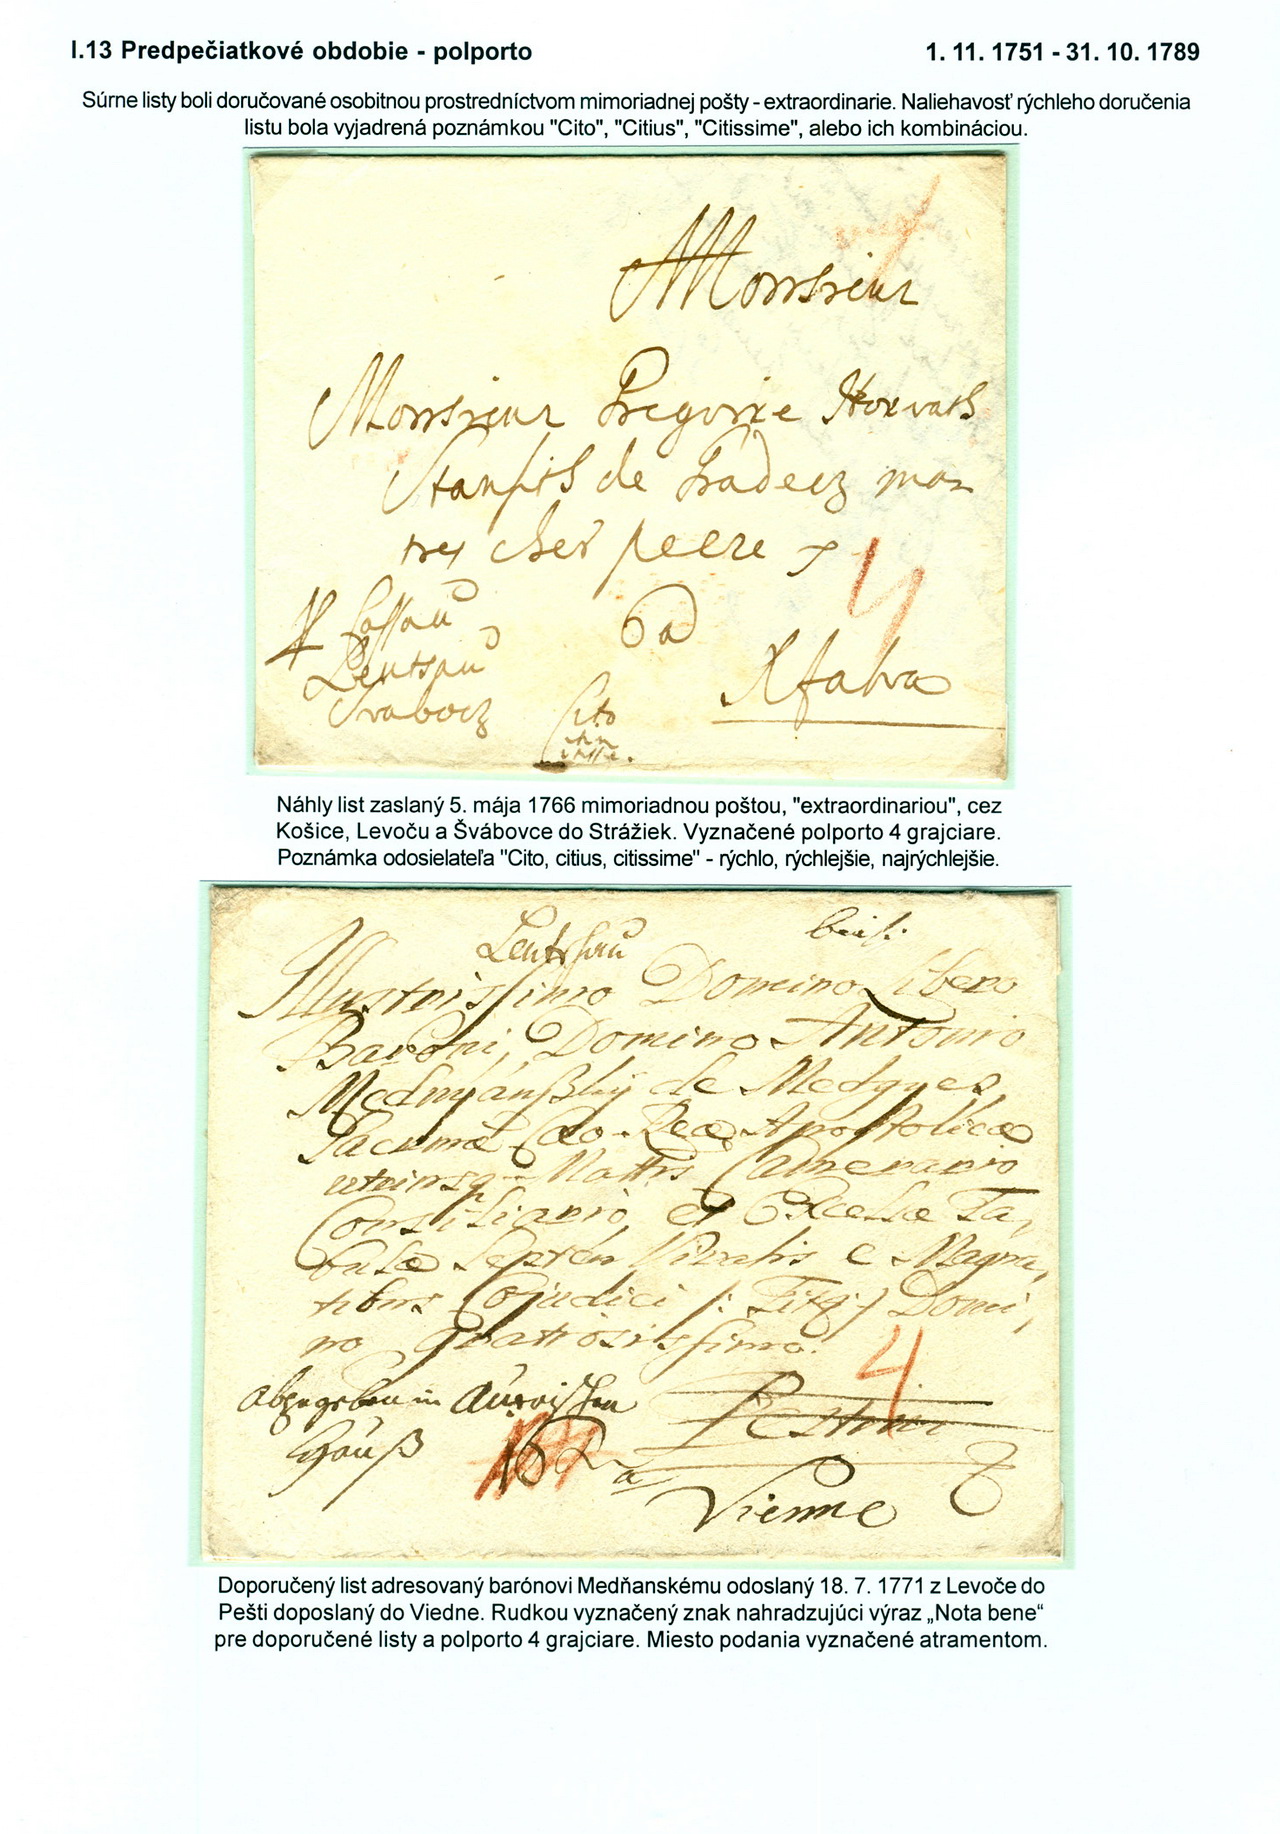 I.13 Predpečiatkové obdobie - polporto 1. 11. 1751 - 31. 10. 1789
Súrne listy boli doručované osobitnou prostredníctvom mimoriadnej pošty - extraordinarie. Naliehavosť rýchleho doručenia
listu bola vyjadrená poznámkou "Cito", "Citius", "Citissime", alebo ich kombináciou.
Monsieur
Monsieur Gregoire Horvath
Stansith de Gradecz mon
tres cher peere
4
Cassau
Leutschau
Svabocz
a
Cito
Náhly list zaslaný 5. mája 1766 mimoriadnou poštou, "extraordinariou", cez
Košice, Levoču a Švábovce do Strážiek. Vyznačené polporto 4 grajciare.
Poznámka odosielateľa "Cito, citius, citissime" - rýchlo, rýchlejšie, najrýchlejšie.
Leutschau
Illustrissimo Domino Libero
Baroni, Domino Antonio
Mednyánßky de Medgyes
Sacrae Cao Reae Apostolicae
Mattis Camerario
Consiliario, et Excelsae Ta,
bulae Septem Viralis e Magna,
tibus Cojudici /: Titt :/ Domi,
no gratiosissimo.
4
abzugeben in
Hauß
Pestini
a
Vienne
Doporučený list adresovaný barónovi Medňanskému odoslaný 18. 7. 1771 z Levoče do
Pešti doposlaný do Viedne. Rudkou vyznačený znak nahradzujúci výraz „Nota bene“
pre doporučené listy a polporto 4 grajciare. Miesto podania vyznačené atramentom.